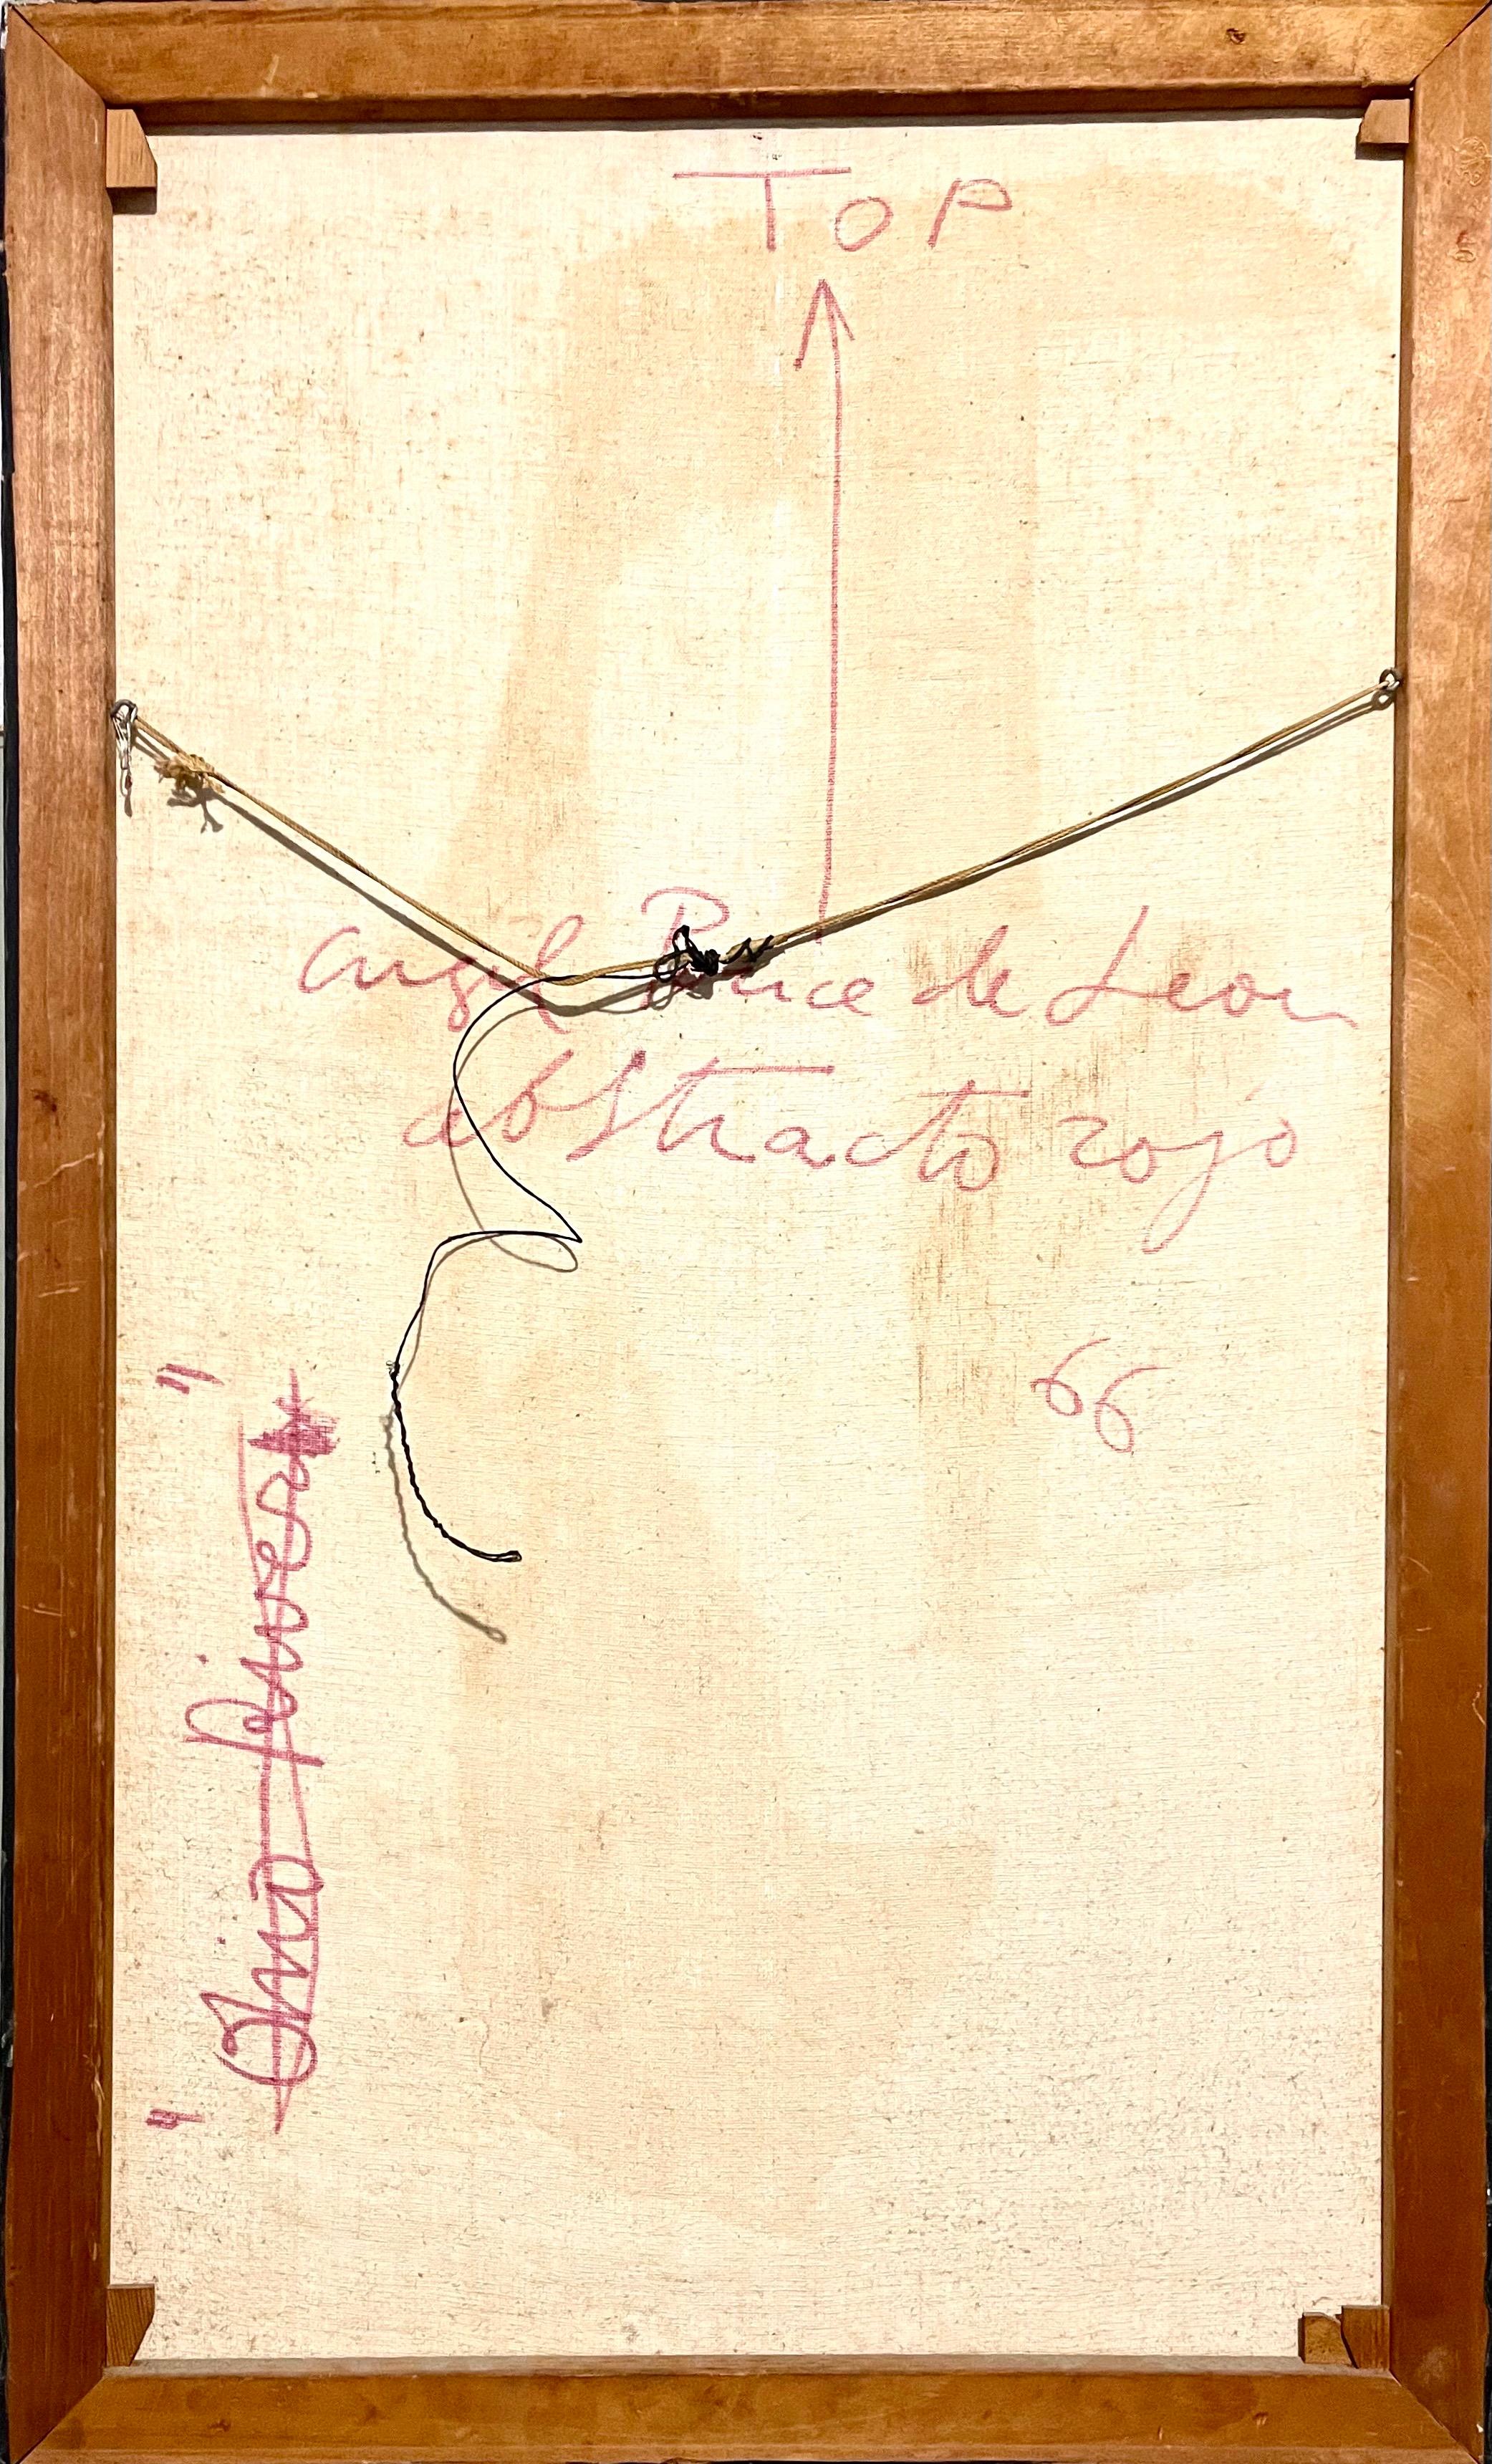 TOP
Angel Ponce de Leon
abstracto rojo
66